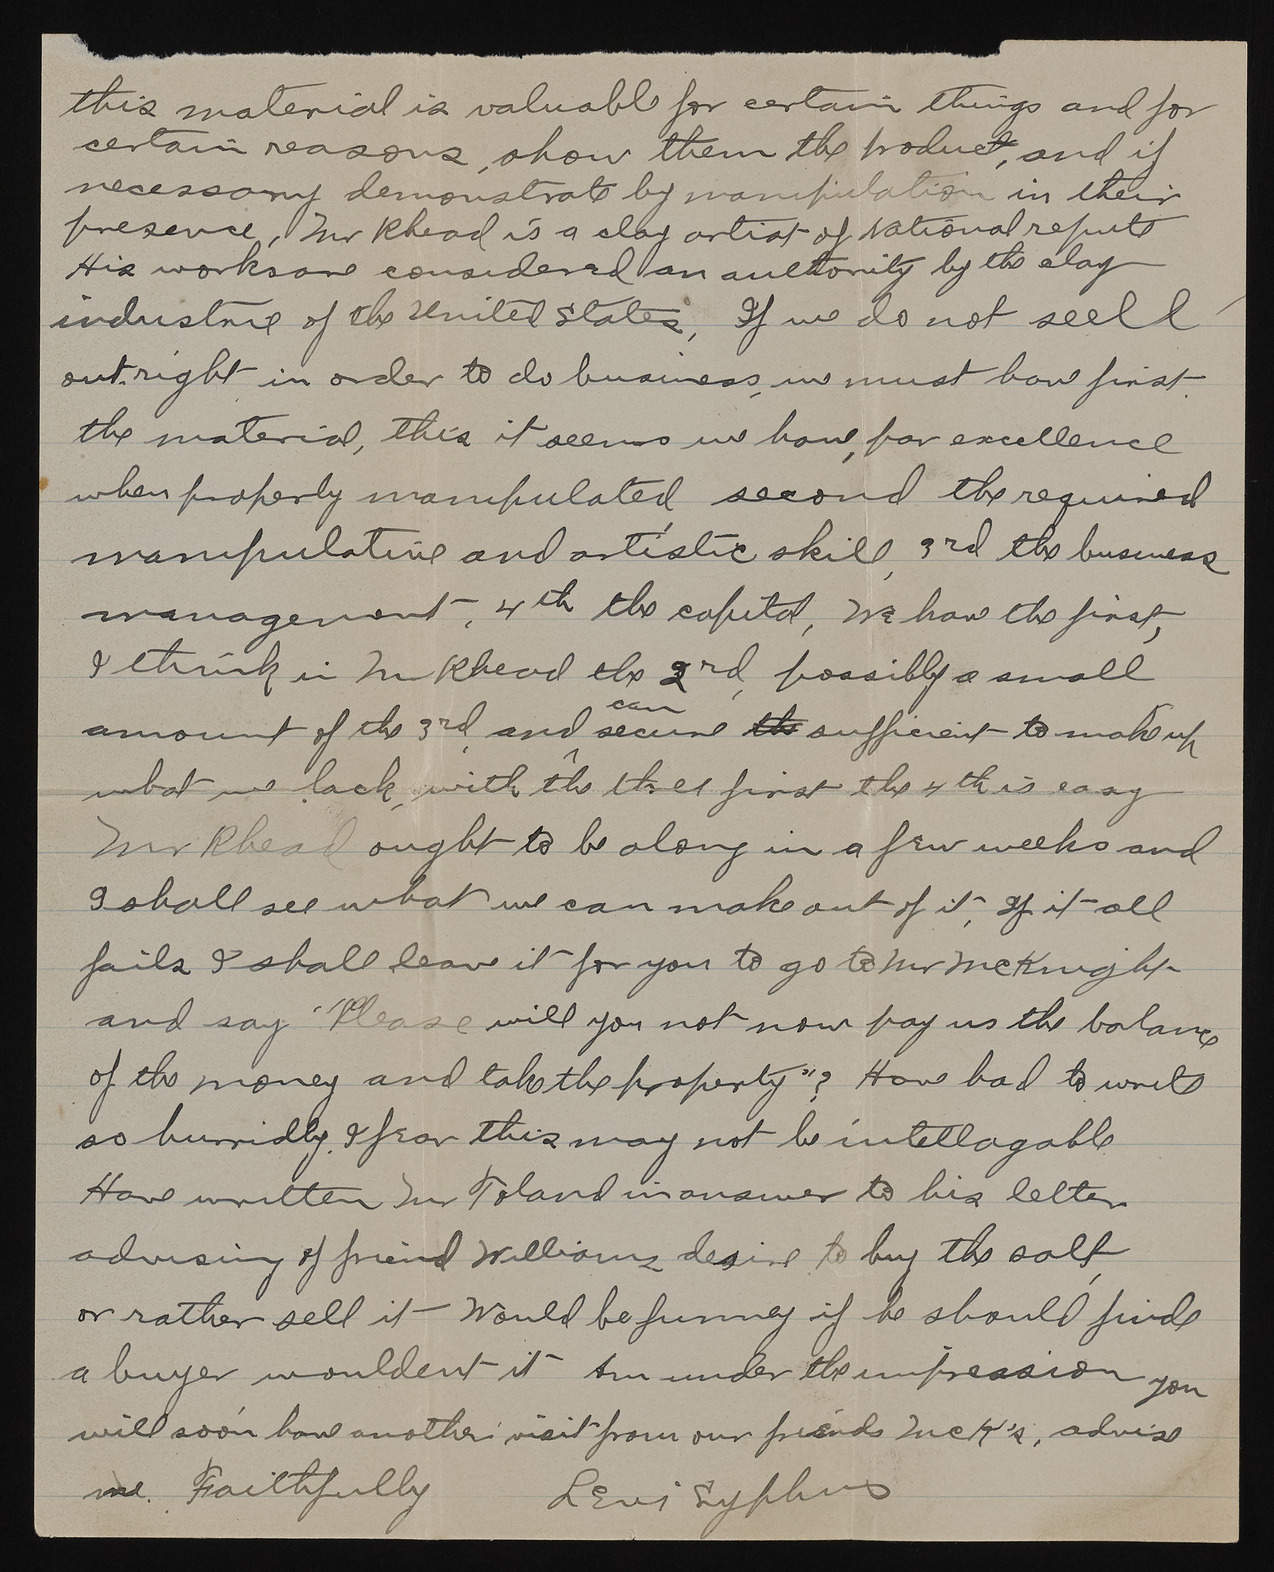 this material is valuable for certain things and for
certain reasons, show them the product, and if
necessary demonstrate by manipulation in their
presence, Mr Rhead is a clay artist of National repute
His works are considered an authority by the clay
industrie of the United States, If we do not seell
out.right in order to do business, we must have first
the material, this it seems we have, par excellence
when properly manipulated, second the required
manipulative and artistic skill, 3rd the business
management, 4th the capital, We have the first,
I think in Mr Rhead the 2rd, possibly a small
amount of the 3rd, and can secure the sufficient to make up
what we lack, with the three first the 4th is easy
Mr Rhead ought to be along in a few weeks and
I shall see what we can make out of it, If it all
fails I shall leave it for you to go to Mr McKnight
and say "Please will you not now pay us the balance
of the money and take the property"? Have had to write
so hurridly, I fear this may not be intellagable
Have written Mr Toland in answer to his letter
advising of friend Williams desire to buy the salt,
or rather sell it - Would be funney if he should finde
a buyer wouldent it Am under the impression you
will soon have another visit from our friends McK's, advise
me. Faithfully Levi Syphus